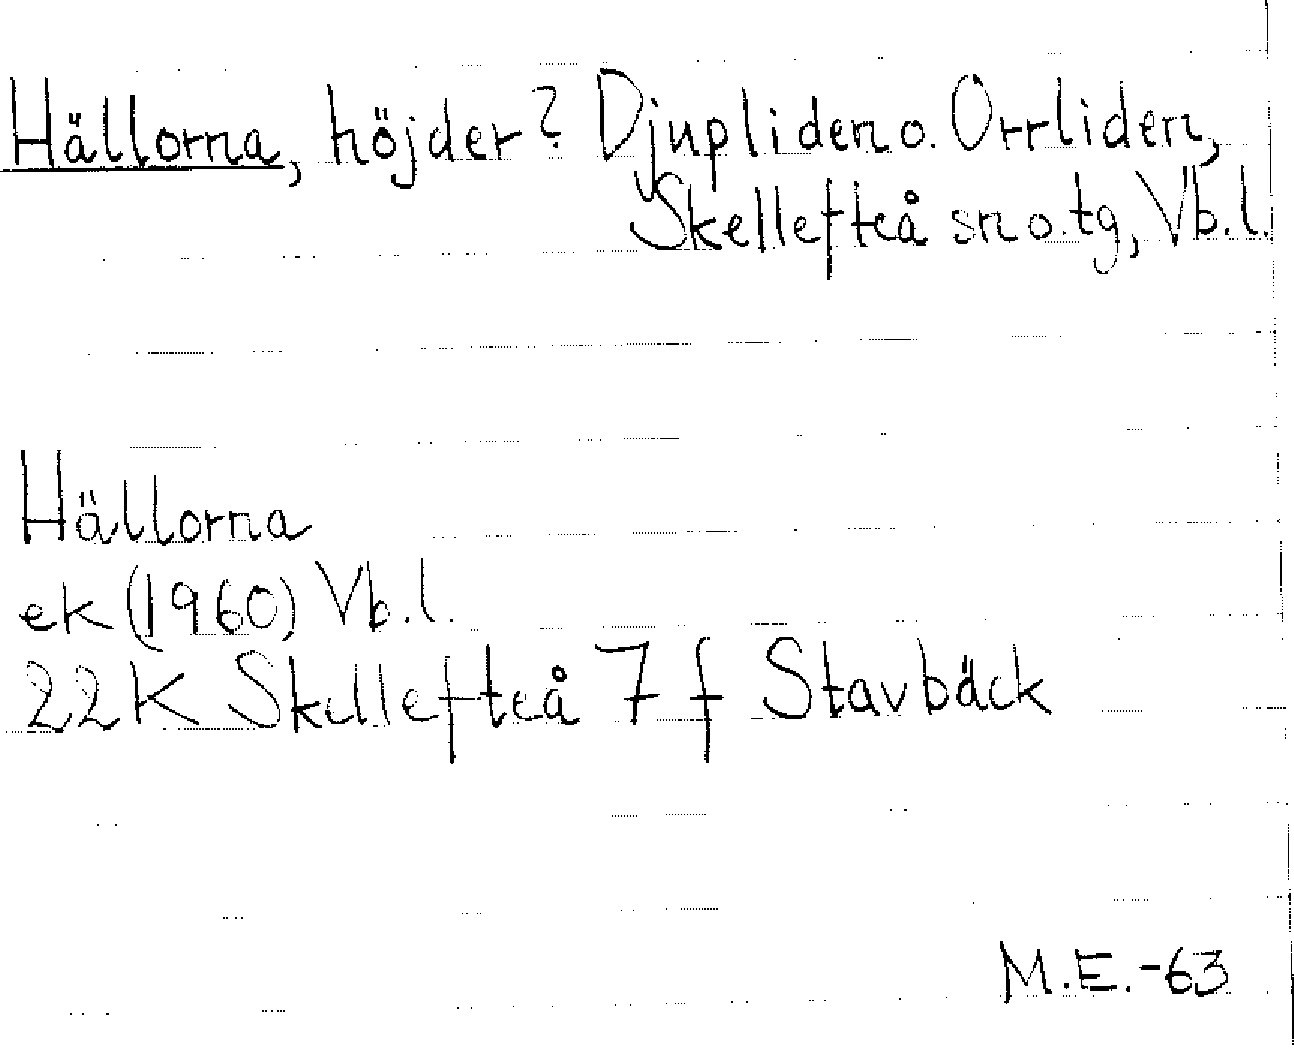 Hällorna, höjder? Djupliden o. Orrliden,
Skellefteå sn o. tg, Vb.l.
Hällorna
ek (1960) Vb.l.
22K Skellefteå 7 f Stavbäck
M.E.-63